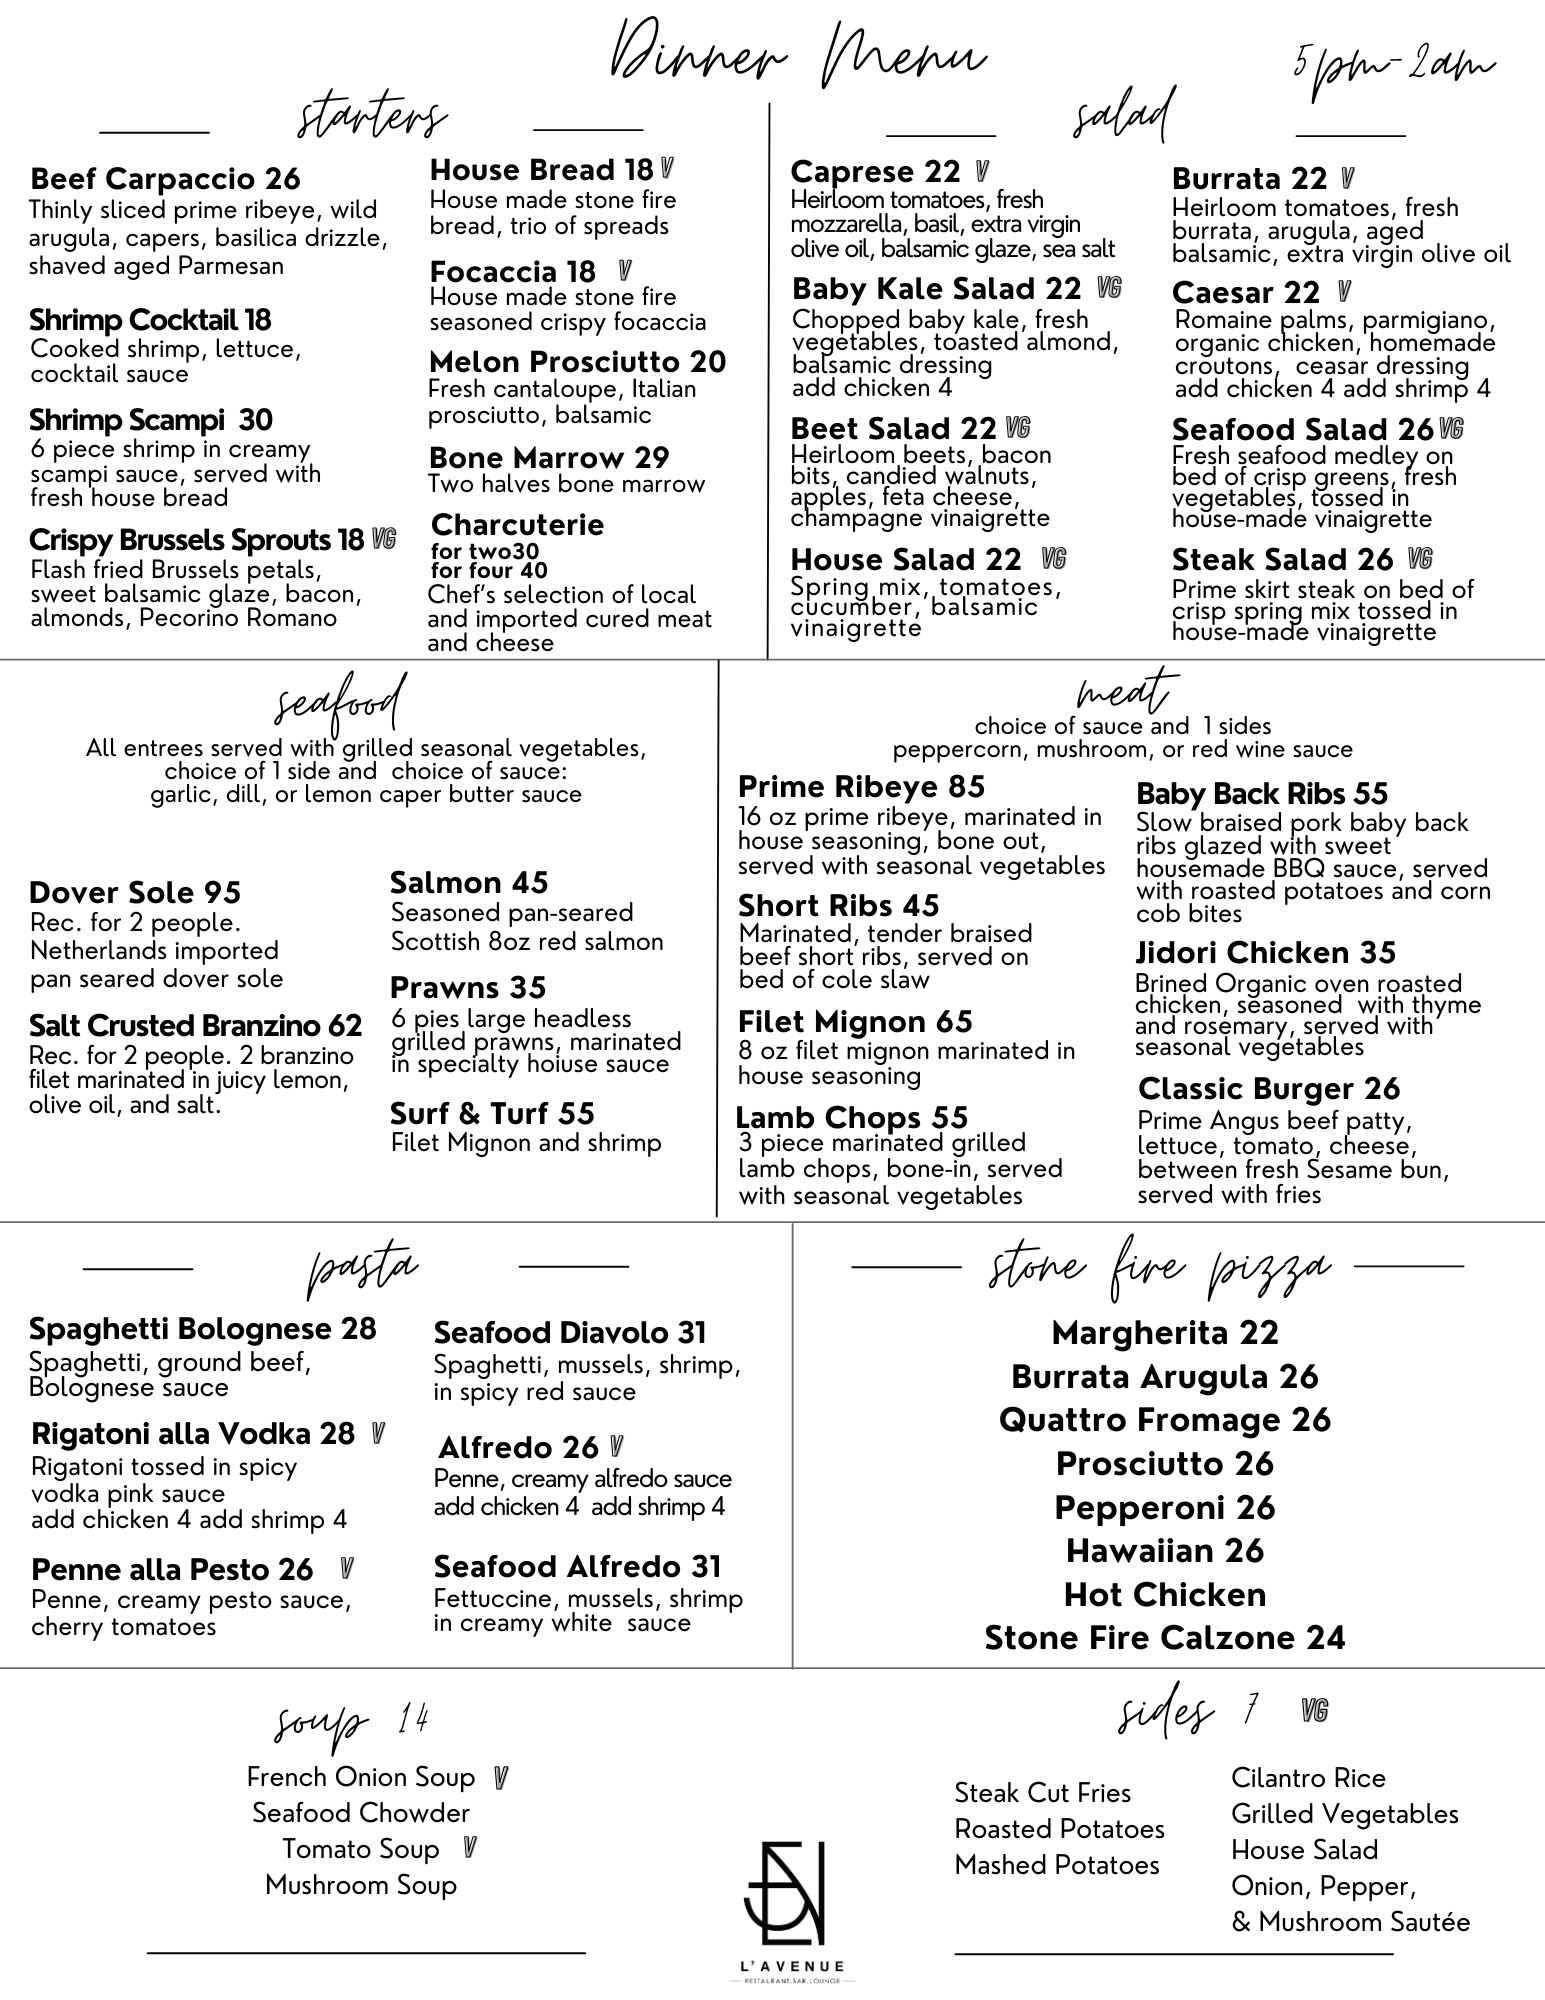 Dinner Menu
5pm-2am
starters
Beef Carpaccio 26
Thinly sliced prime ribeye, wild
arugula, capers, basilica drizzle,
shaved aged Parmesan
Shrimp Cocktail 18
Cooked shrimp, lettuce,
cocktail sauce
Shrimp Scampi 30
6 piece shrimp in creamy
scampi sauce, served with
fresh house bread
Crispy Brussels Sprouts 18 VG
Flash fried Brussels petals,
sweet balsamic glaze, bacon,
almonds, Pecorino Romano
House Bread 18 V
House made stone fire
bread, trio of spreads
Focaccia 18 V
House made stone fire
seasoned crispy focaccia
Melon Prosciutto 20
Fresh cantaloupe, Italian
prosciutto, balsamic
Bone Marrow 29
Two halves bone marrow
Charcuterie
for two30
for four 40
Chef's selection of local
and imported cured meat
and cheese
salad
Caprese 22 V
Heirloom tomatoes, fresh
mozzarella, basil, extra virgin
olive oil, balsamic glaze, sea salt
Baby Kale Salad 22 VG
Chopped baby kale, fresh
vegetables, toasted almond,
balsamic dressing
add chicken 4
Beet Salad 22 VG
Heirloom beets, bacon
bits, candied walnuts,
apples, feta cheese,
champagne vinaigrette
House Salad 22 VG
Spring mix, tomatoes,
cucumber, balsamic
vinaigrette
Burrata 22 V
Heirloom tomatoes, fresh
burrata, arugula, aged
balsamic, extra virgin olive oil
Caesar 22 V
Romaine palms, parmigiano,
organic chicken, homemade
croutons, ceasar dressing
add chicken 4 add shrimp 4
Seafood Salad 26 VG
Fresh seafood medley on
bed of crisp greens, fresh
vegetables, tossed in
house-made vinaigrette
Steak Salad 26 VG
Prime skirt steak on bed of
crisp spring mix tossed in
house-made vinaigrette
seafood
All entrees served with grilled seasonal vegetables,
choice of 1 side and choice of sauce:
garlic, dill, or lemon caper butter sauce
Dover Sole 95
Rec. for 2 people.
Netherlands imported
pan seared dover sole
Salt Crusted Branzino 62
Rec. for 2 people. 2 branzino
filet marinated in juicy lemon,
olive oil, and salt.
Salmon 45
Seasoned pan-seared
Scottish 8oz red salmon
Prawns 35
6 pies large headless
grilled prawns, marinated
in specialty hoiuse sauce
Surf & Turf 55
Filet Mignon and shrimp
meat
choice of sauce and 1 sides
peppercorn, mushroom, or red wine sauce
Prime Ribeye 85
16 oz prime ribeye, marinated in
house seasoning, bone out,
served with seasonal vegetables
Short Ribs 45
Marinated, tender braised
beef short ribs, served on
bed of cole slaw
Filet Mignon 65
8 oz filet mignon marinated in
house seasoning
Lamb Chops 55
3 piece marinated grilled
lamb chops, bone-in, served
with seasonal vegetables
Baby Back Ribs 55
Slow braised pork baby back
ribs glazed with sweet
housemade BBQ sauce, served
with roasted potatoes and corn
cob bites
Jidori Chicken 35
Brined Organic oven roasted
chicken, seasoned with thyme
and rosemary, served with
seasonal vegetables
Classic Burger 26
Prime Angus beef patty,
lettuce, tomato, cheese,
between fresh Sesame bun,
served with fries
pasta
Spaghetti Bolognese 28
Spaghetti, ground beef,
Bolognese sauce
Rigatoni alla Vodka 28 V
Rigatoni tossed in spicy
vodka pink sauce
add chicken 4 add shrimp 4
Penne alla Pesto 26 V
Penne, creamy pesto sauce,
cherry tomatoes
Seafood Diavolo 31
Spaghetti, mussels, shrimp,
in spicy red sauce
Alfredo 26 V
Penne, creamy alfredo sauce
add chicken 4 add shrimp 4
Seafood Alfredo 31
Fettuccine, mussels, shrimp
in creamy white sauce
stone fire pizza
Margherita 22
Burrata Arugula 26
Quattro Fromage 26
Prosciutto 26
Pepperoni 26
Hawaiian 26
Hot Chicken
Stone Fire Calzone 24
soup 14
French Onion Soup V
Seafood Chowder
Tomato Soup V
Mushroom Soup
sides 7 VG
Steak Cut Fries
Roasted Potatoes
Mashed Potatoes
Cilantro Rice
Grilled Vegetables
House Salad
Onion, Pepper,
& Mushroom Sautée
L'AVENUE
RESTAURANT.BAR.LOUNGE